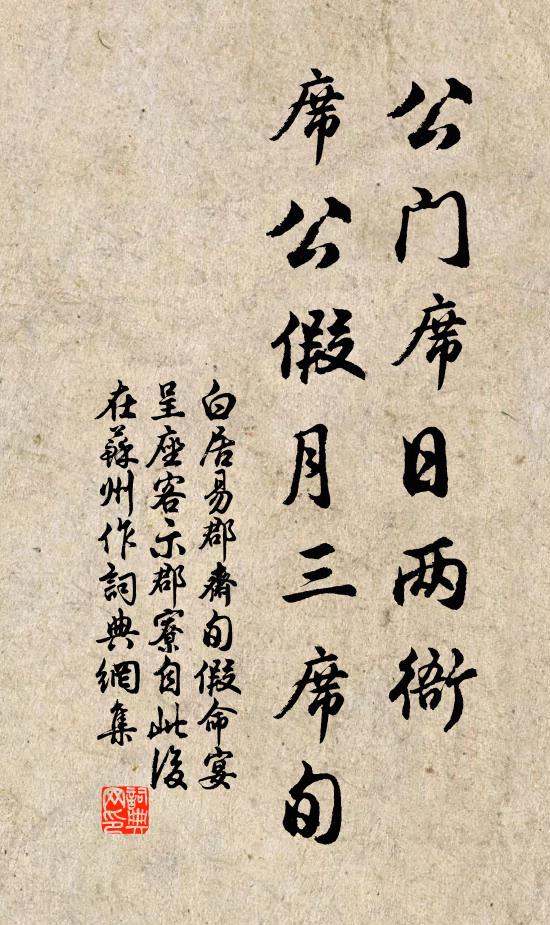 公门席日两衙
席公假月三席旬
白居易郡斋旬假命宴
呈座客示郡寮自此后
在蘇州作詞典網集
詞典网印